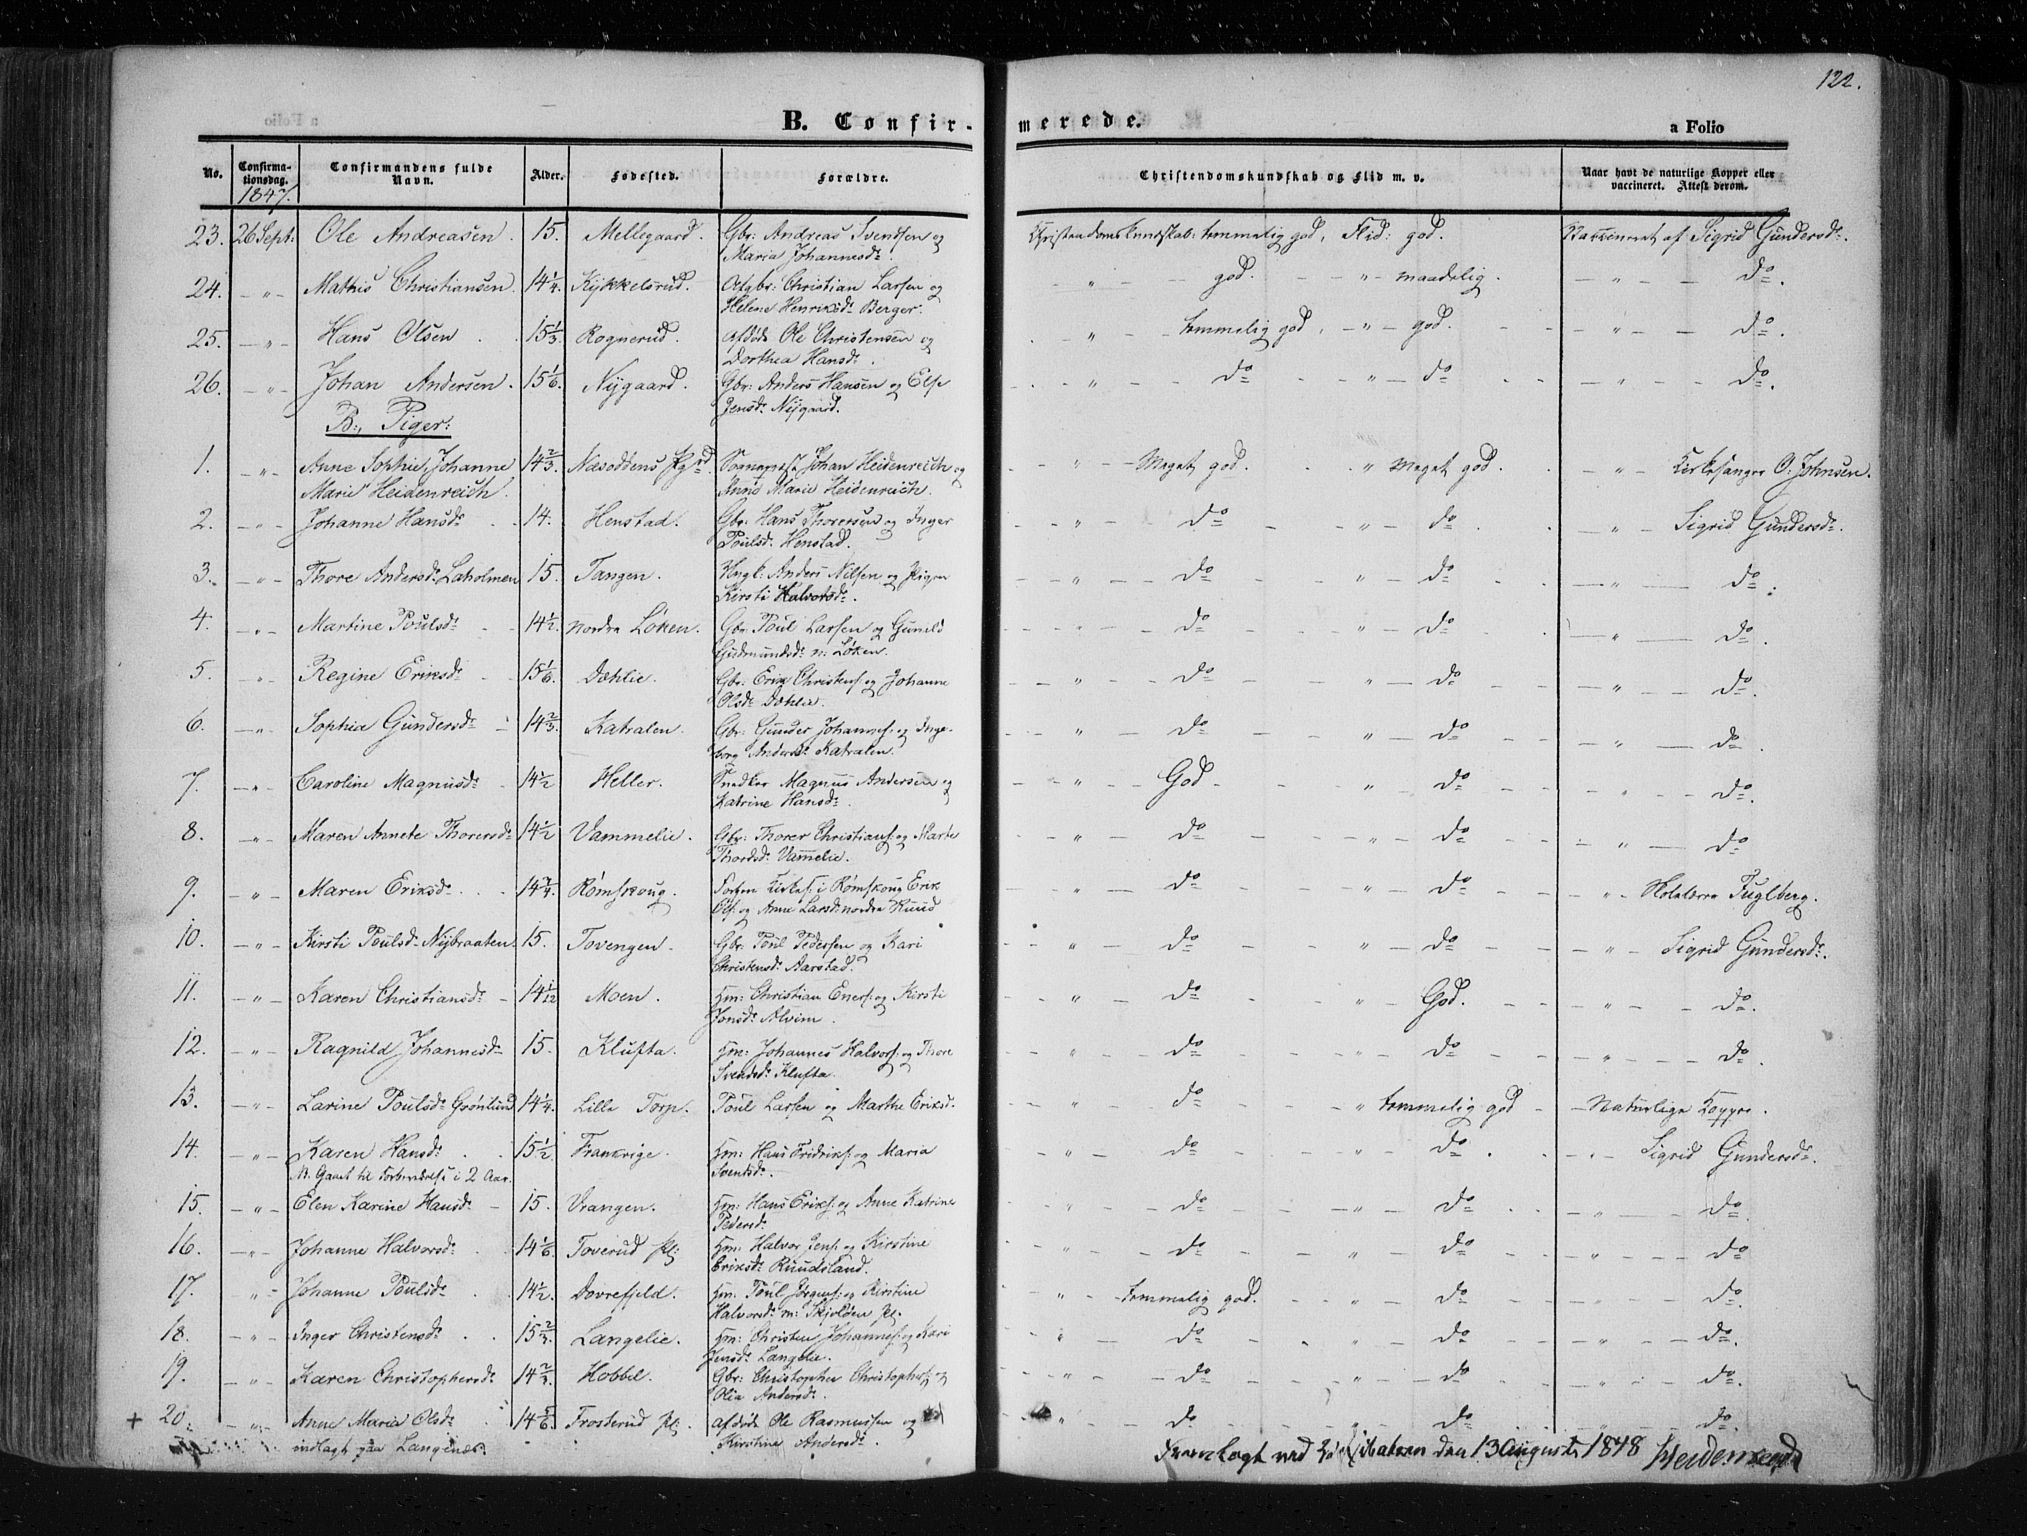 122.
B. Confir-merede.
a Folio
No. Confirma-tionsdag. Confirmandens fulde Navn. Alder. Fødested. Forældre. Christendomskundskab og Flid m. v. Naar havt de naturlige Kopper eller vaccineret. Attest derom.
1847.
23. 26 Sept: Ole Andreasen. 15. Mellegaard. Gbr: Andreas Svendsen og Christendomskundskab: temmelig god, Flid: god. Vaccineret af Sigrid Gundersd:
Maria Johannesd:
24. -"- Mathis Christiansen. 14 1/4. Kykkelsrud. Christian Larsen og -"- god. -"- maadelig. -"- do.
Helene Henriksd: Berger.
25. -"- Hans Olsen. 15 1/3. Rognerud. afdøde Ole Christensen og -"- temmelig god, -"- god. -"- do.
Dorthea Hansd:
26. -"- Johan Andersen. 15 1/6. Nygaard. Gbr: Anders Hansen og Else -"- do -"- do -"- do.
Jensd: Nygaard.
B., Piger:
1. -"- Anne Sophie Johanne 14 2/3. Næsoddens Pgd Sognepræst Johan Heidenreich og -"- Meget god. " Meget god. -"- Kirkesanger O. Johnsen.
Marie Heidenreich. Anne Marie Heidenreich.
2. -"- Johanne Hansd: 14. Henstad. Gbr: Hans Thorersen og Inger -"- do -"- do " Sigrid Gundersd:
Poulsd: Henstad.
3. -"- Thore Andersd: Laholmen 15. Tangen. Ungk: Anders Nilsen og Pigen -"- do " do -"- do.
Kirsti Halvorsd:
4. -"- Martine Poulsd: 14 1/2. nordre Löken. Gbr: Poul Larsen og Gunild -"- do " do -"- do.
Gudmundsd: n: Löken.
5. " Regine Eriksd: 15 1/6. Dæhlie. Gbr: Erik Christens: og Johanne -"- do -"- do -"- do.
Olsd: Dæhlie.
6. -"- Sophia Gundersd: 14 2/3. Katralen. Gbr: Gunder Johannes: og Inge- -"- do -"- do -"- do.
borg Andersd: Katralen.
7. -"- Caroline Magnusd: 14 1/2 Heller. Snedker Magnus Andersen og -"- God. -"- do -"- do.
Katrine Hansd:
8. -"- Maren Annete Thorersd: 14 1/2 Vammelie. Gbr: Thorer Christians: og Marte -"- do -"- do -"- do.
Thordsd: Vammelie.
9. -"- Maren Eriksd: 14 3/4. Rømskoug. i Rømskoug Erik -"- do -"- do " Fuglberg.
Ols: og Anne Larsd: nordre Ruud
10. -"- Kirsti Poulsd: Nybraaten. 15. Tovengen. Gbr: Poul Pedersen og Kari -"- do -"- do " Sigrid Gundersd:
Christensd: Aarstad.
11. -"- Karen Christiansd: 14 1/12 Moen. Hm: Christian Eners: og Kirsti -"- do -"- God. -"- do.
Jonsd: Alvim.
12. -"- Ragnild Johannesd: 15. Klufta. Hm: Johannes Halvors: og Thore -"- do -"- do -"- do.
Svendsd: Klufta.
13. -"- Larine Poulsd: Grønlund 14 1/4. Lille Torp. Poul Larsen og Marthe Eriksd. " do " temmelig god Naturlige Kopper.
14. -"- Karen Hansd: 15 1/2. Frankrige. Hm: Hans Fridriks: og Maria -"- do -"- do Sigrid Gundersd:
N. Gaaet til Forberedelse i 2 Aar. Svendsd:
15. -"- Elen Karine Hansd: 15. Vrangen. Hm: Hans Eriks: og Anne Katrine -"- do -"- do -"- do.
Pedersd:
16. -"- Johanne Halvorsd: 14 1/6. Toverud Pl: Hm: Halvor Jens: og Kirstine -"- do -"- do -"- do
Eriksd: Ruudsland.
17. " Johanne Poulsd: 14 1/2. Dovrefjeld. Hm: Poul Jörgens: og Kirstine -"- temmelig god. -"- do -"- do.
Halvorsd: m: Skjolden Pl.
18. -"- Inger Christensd: 15 2/3. Langelie. Hm: Christen Johannes: og Kari " do " do " do.
Jensd: Langelie.
19. -"- Karen Christophersd: 14 2/3. Hobbel. Gbr: Christopher Christophers: og -"- do -"- do -"- do.
Olia Andersd:
+ 20. -"- Anne Maria Olsd: 14 5/6. Frosterud Pl: afdøde Ole Rasmussen og " do " do " do.
indlagt paa Langenæs: Kirstine Andersd:
Fremlagt ved den 13 August 1848 Heidenreich